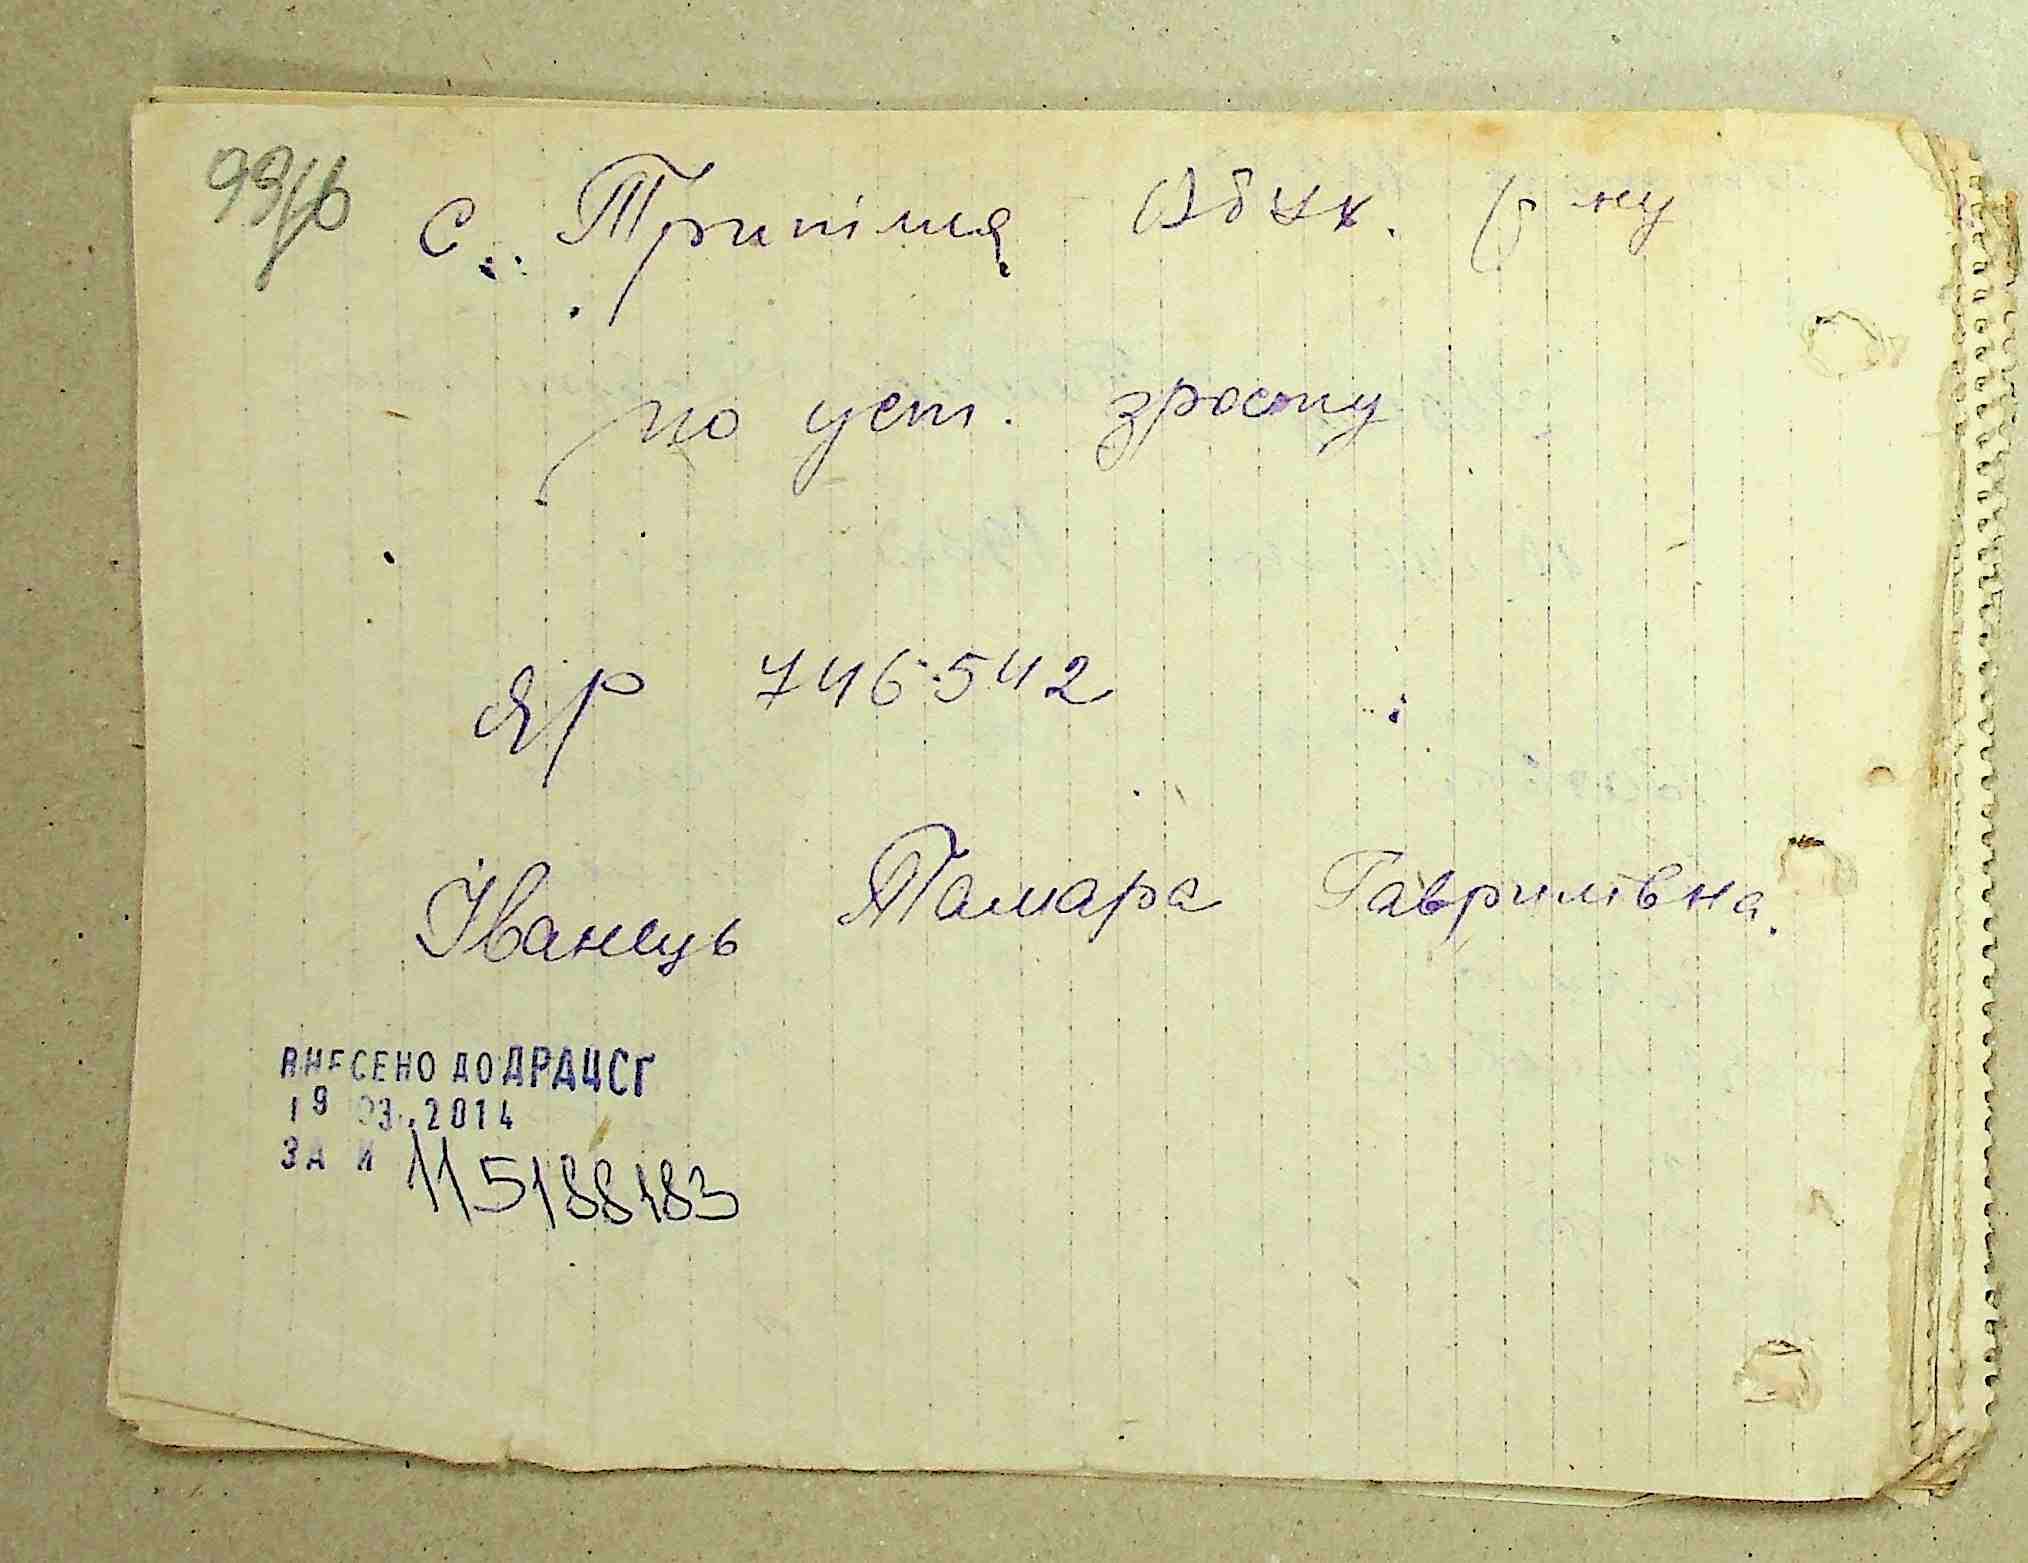 с. Трипілля Обух. р-ну
по уст. зросту
ЯР 746542
Іванець Тамара Гаврилівна.
ВНЕСЕНО ДО ДРАЦСГ
19 03.2014
ЗА №
115188183